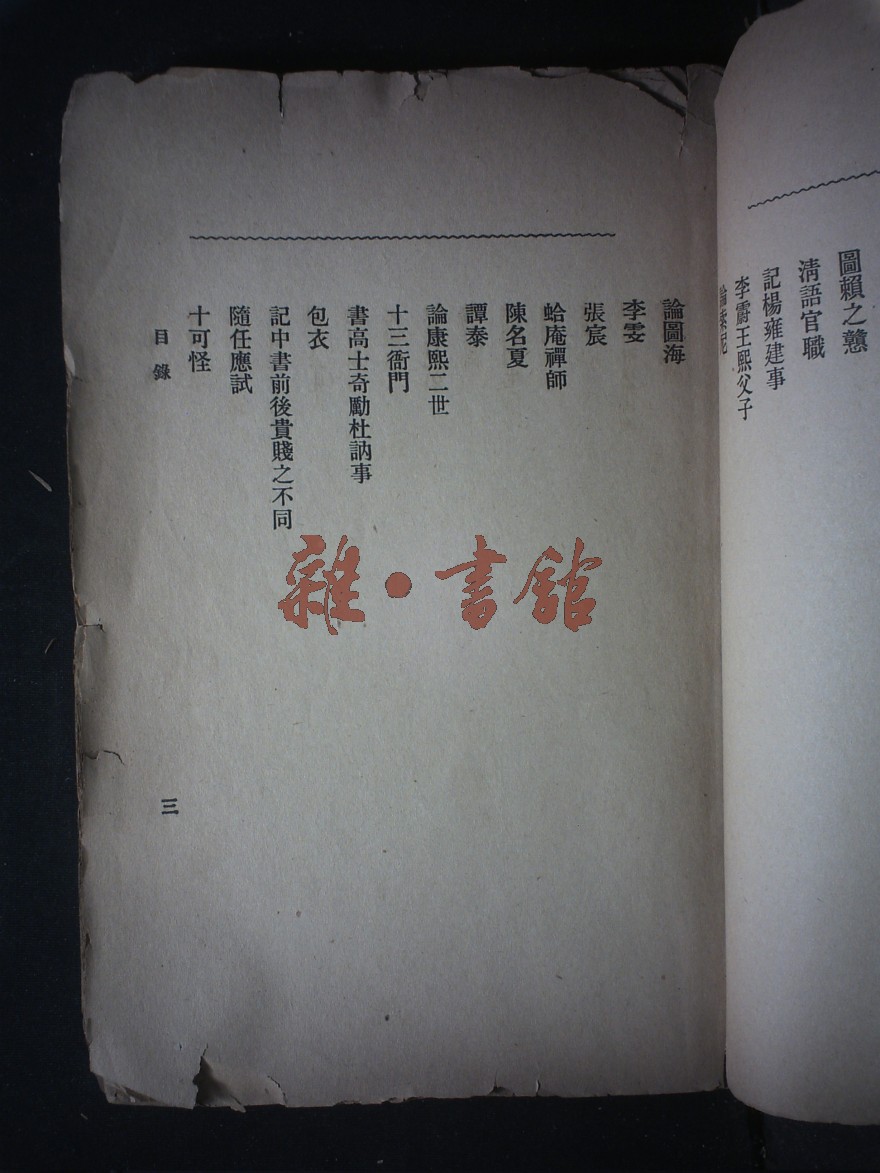 圖賴之戇
淸語官職
記楊雍建事
李霨王熙父子
論索尼
論圖海
李雯
張宸
蛤庵禪師
陳名夏
譚泰
論康熙二世
十三衙門
書高士奇勵杜訥事
包衣
記中書前後貴賤之不同
隨任應試
十可怪
目錄
三
雜·書館